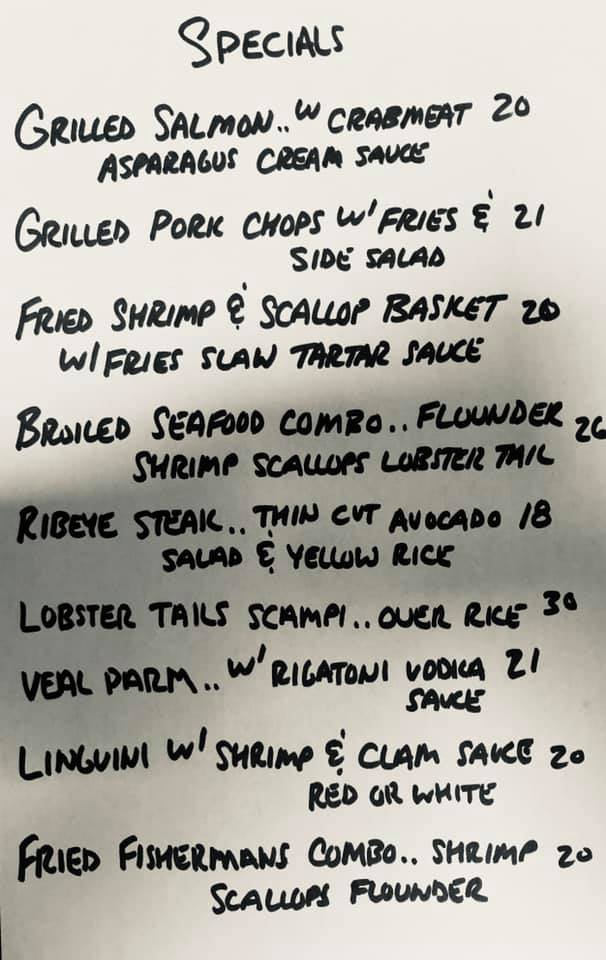 SPECIALS
GRILLED SALMON.. W CRABMEAT 20
ASPARAGUS CREAM SAUCE
GRILLED PORK CHOPS W/ FRIES & 21
SIDE SALAD
FRIED SHRIMP & SCALLOP BASKET 20
W/ FRIES SLAW TARTAR SAUCE
BROILED SEAFOOD COMBO.. FLOUNDER
SHRIMP SCALLOPS LOBSTER TAIL
RIBEYE STEAK.. THIN CUT AVOCADO 18
SALAD & YELLOW RICE
LOBSTER TAILS SCAMPI.. OVER RICE 30
VEAL PARM.. W/ RIGATONI VODKA 21
SAUCE
LINGUINI W/ SHRIMP & CLAM SAUCE 20
RED OR WHITE
FRIED FISHERMANS COMBO.. SHRIMP 20
SCALLOPS FLOUNDER